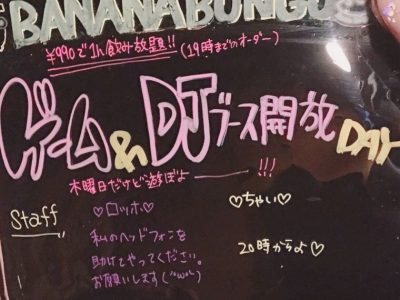 BANANABUNGO
¥990で1h飲み放題!! (19時までのオーダー)
ゲーム&DJブース開放DAY
木曜日だけど遊ぼよ !!!
Staff
♡ロッホ♡
♡ちゃい♡
私のヘッドフォンを
助けてやってください。
お願いします(
20時からよ♡